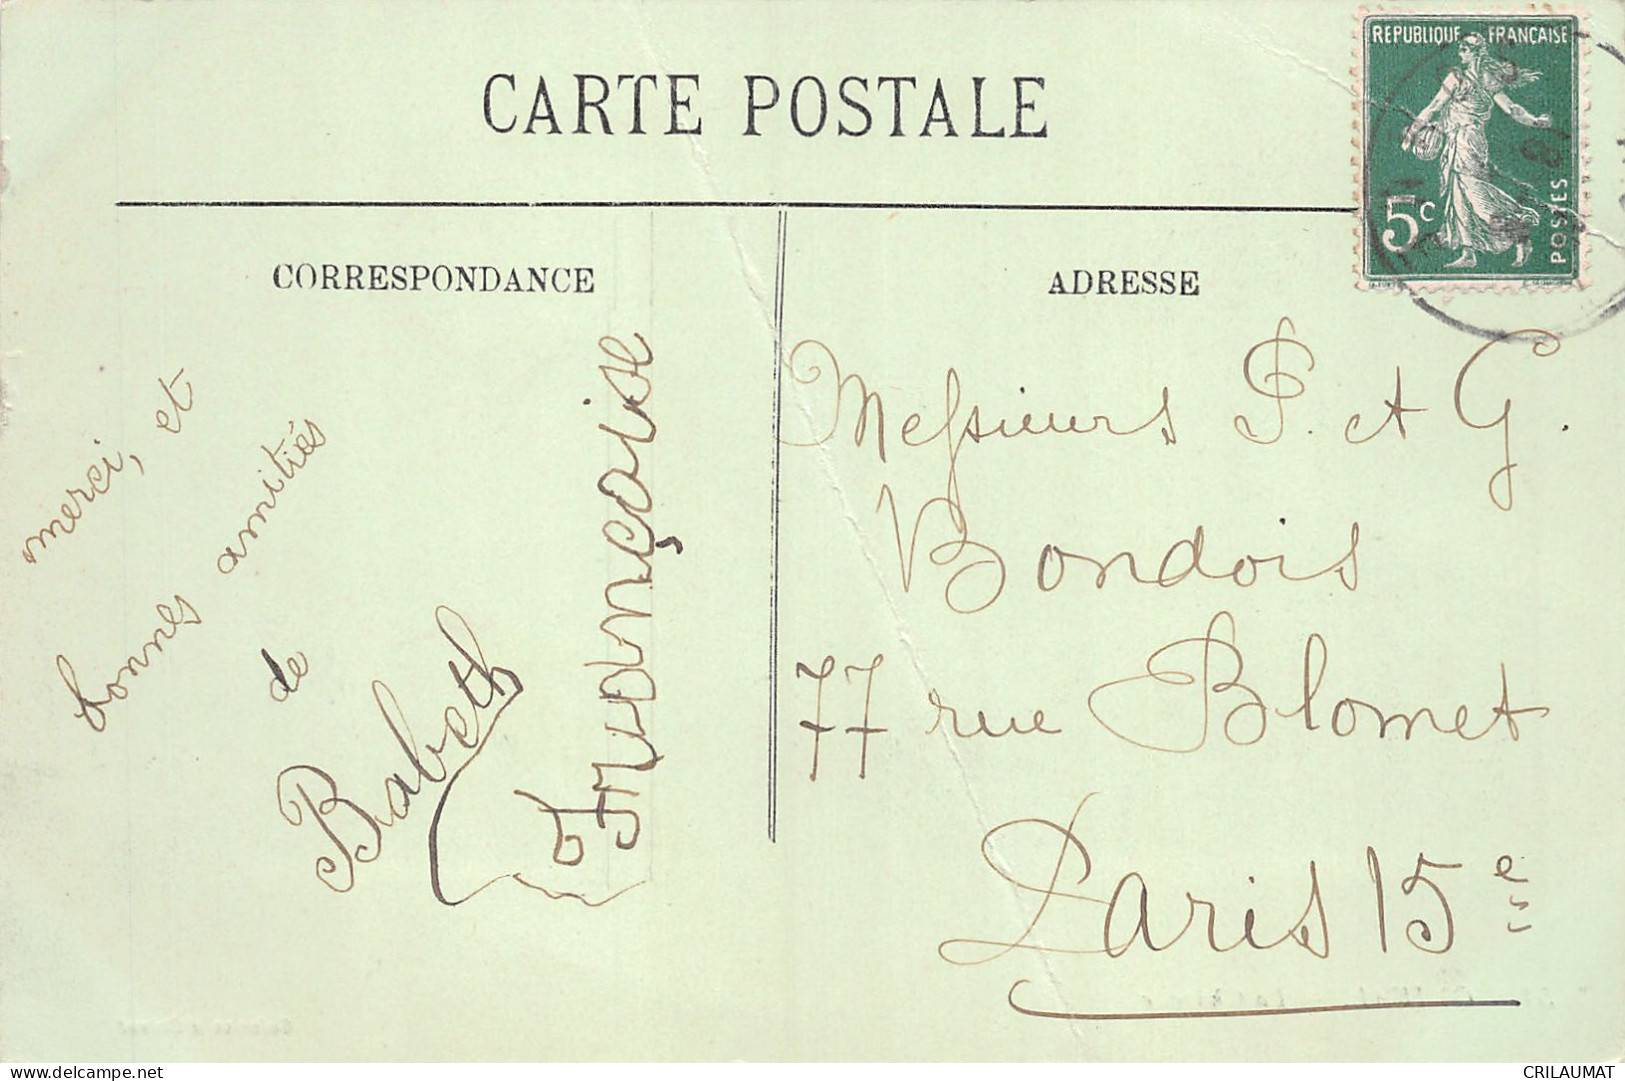 CARTE POSTALE
RÉPUBLIQUE FRANÇAISE
5c
POSTES
CORRESPONDANCE
ADRESSE
merci, et
bonnes amitiés
de
Babeth
Françoise
Messieurs P. et G.
Bondois
77 rue Blomet
Paris 15e
delcampe.net
CRILAUMAT